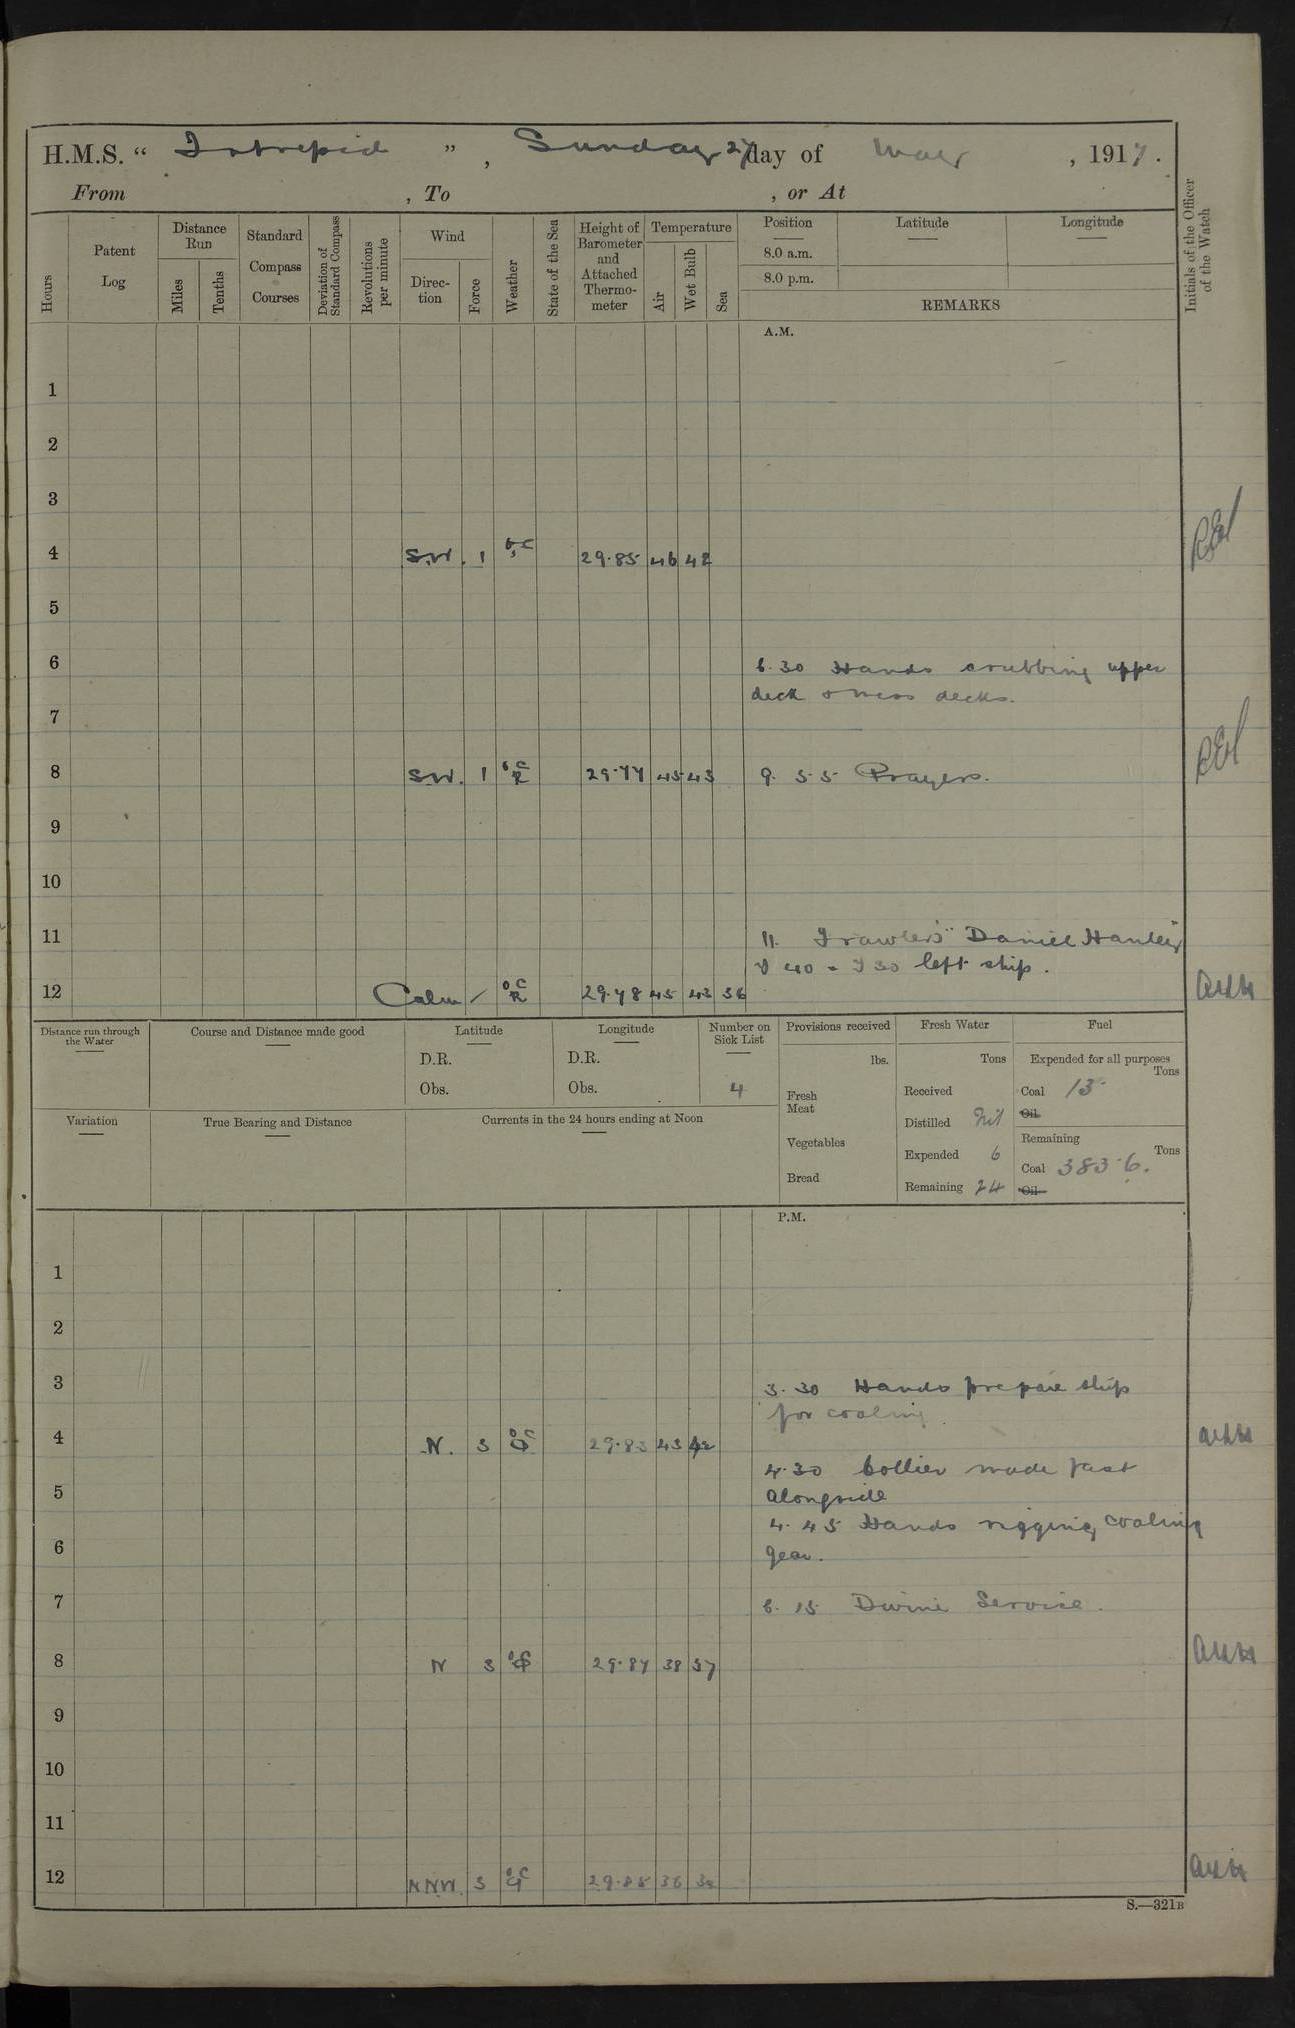 H.M.S. “ Intrepid ” , Sunday 27 day of May , 1917 .
From , To , or At
Hours
Patent Log
Distance Run
Miles
Tenths
Standard Compass Courses
Deviation of Standard Compass
Revolutions per minute
Wind
Direction
Force
Weather
State of the Sea
Height of Barometer and Attached Thermometer
Temperature
Air
Wet Bulb
Sea
Position
8.0 a.m.
8.0 p.m.
Latitude
Longitude
REMARKS
Initials of the Officer of the Watch
A.M.
1
2
3
4 S.W. 1 b,c 29.85 46 42
5
6 6.30 Hands scrubbing upper
deck & mess decks.
7
8 S.W. 1 29.77 45 43 9.55 Prayers.
9
10
11 11. Trawlers "Daniel Hanley"
T 40 - T 30 left ship.
12 Calm / o c R 29.78 45 43 36
Distance run through the Water
Course and Distance made good
Latitude
D.R.
Obs.
Longitude
D.R.
Obs.
Number on Sick List
4
Provisions received
lbs.
Fresh Meat
Vegetables
Bread
Fresh Water
Tons
Received
Distilled Nil
Expended 6
Remaining 24
Fuel
Expended for all purposes
Tons
Coal 13
Oil
Remaining
Tons
Coal 383.6.
Oil
Variation
True Bearing and Distance
Currents in the 24 hours ending at Noon
P.M.
1
2
3 3.30 Hands prepare ship
for coaling.
4 N. 3 29.83 43 42
4.30 Collier made fast
5 alongside
4.45 Hands rigging coaling
6 gear.
7 6.15 Divine Service.
8 N 3 29.87 38 37
9
10
11
12 NNW. 3 29.88 36
S.—321B